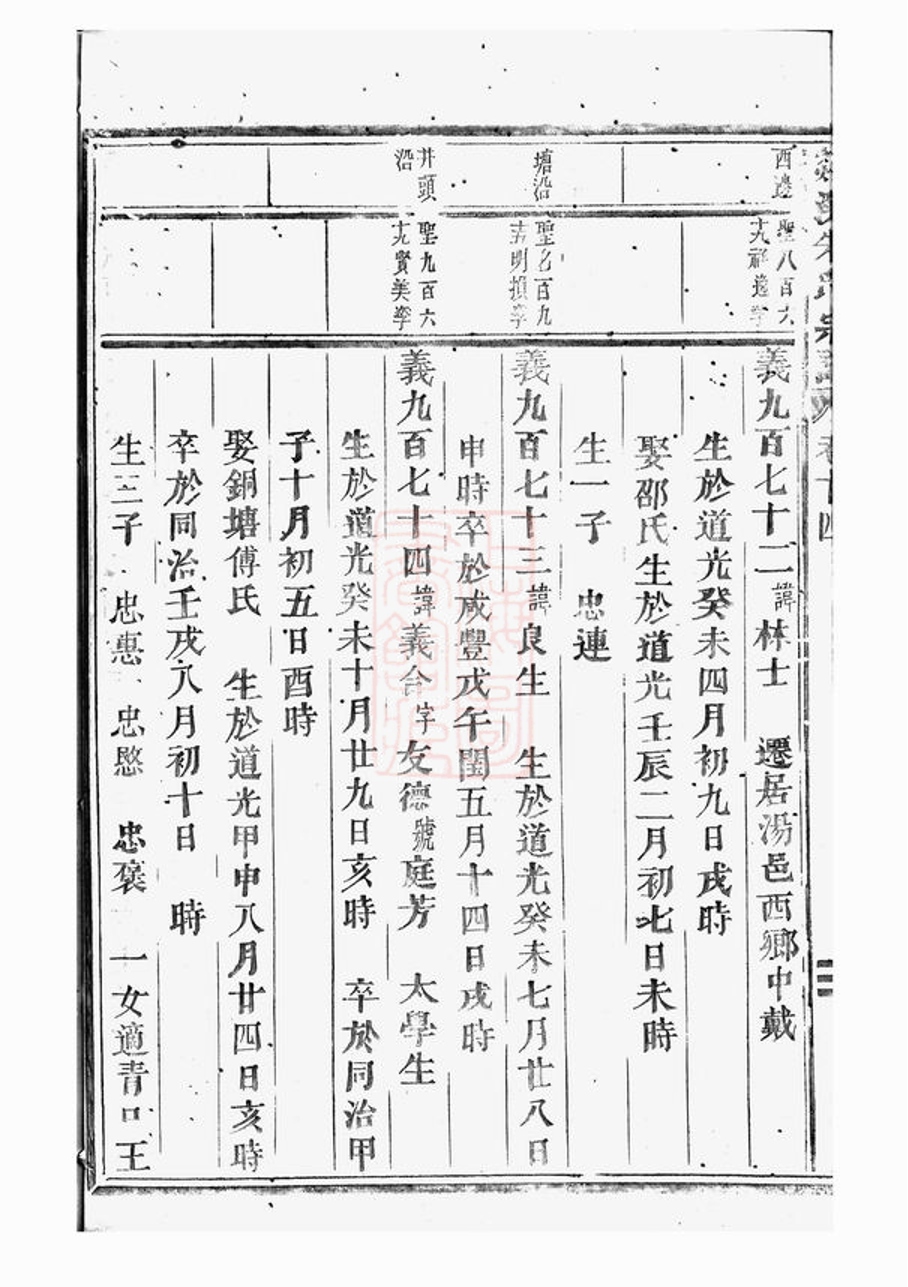 卷十四
西邊
聖八百六
十九祥逵孥
義九百七十二諱林士 遷居湯邑西鄉中戴
生於道光癸未四月初九日戌時
娶邵氏生於道光壬辰二月初七日未時
生一子 忠連
塘沿
聖七百九
十五明損孥
義九百七十三諱良生 生於道光癸未七月廿八日
申時卒於咸豐戊午閏五月十四日戌時
井頭
沿
聖九百六
十九賢美孥
義九百七十四諱義合字友德號庭芳 太學生
生於道光癸未十月廿九日亥時 卒於同治甲
子十月初五日酉時
娶銅塘傅氏 生於道光甲申八月廿四日亥時
卒於同治壬戌八月初十日 時
生三子 忠惠 忠愍 忠褒 一女適青口王